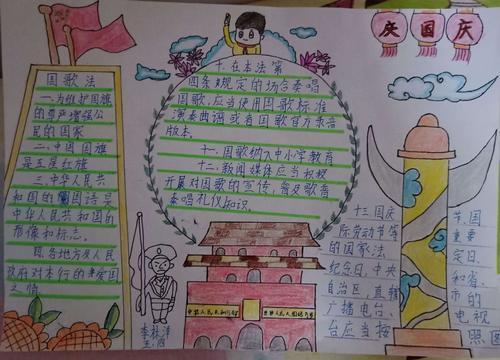 庆国庆
国歌法
一.为维护国旗
的尊严增强公
民的国家
二.中国国旗
是五星红旗
三.中华人民共
和国的国旗是
中华人民共和国的
象征和标志。
四.各地方及人民
政府对本行的
之情
十.在本法第
四条规定的场合奏唱
国歌,应当使用国歌标准
演奏曲谱或者国歌官方录音
版本
十一.国歌纳入中小学教育
十二.新闻媒体应当积极
开展对国歌的宣传,普及歌
奏唱礼仪知识.
十三国庆节、国
际劳动节等重要
的国家法定日、
纪念日,中央和省、
自治区、直辖市的
广播电台、电视
台应当按照国
中华人民共和国万岁